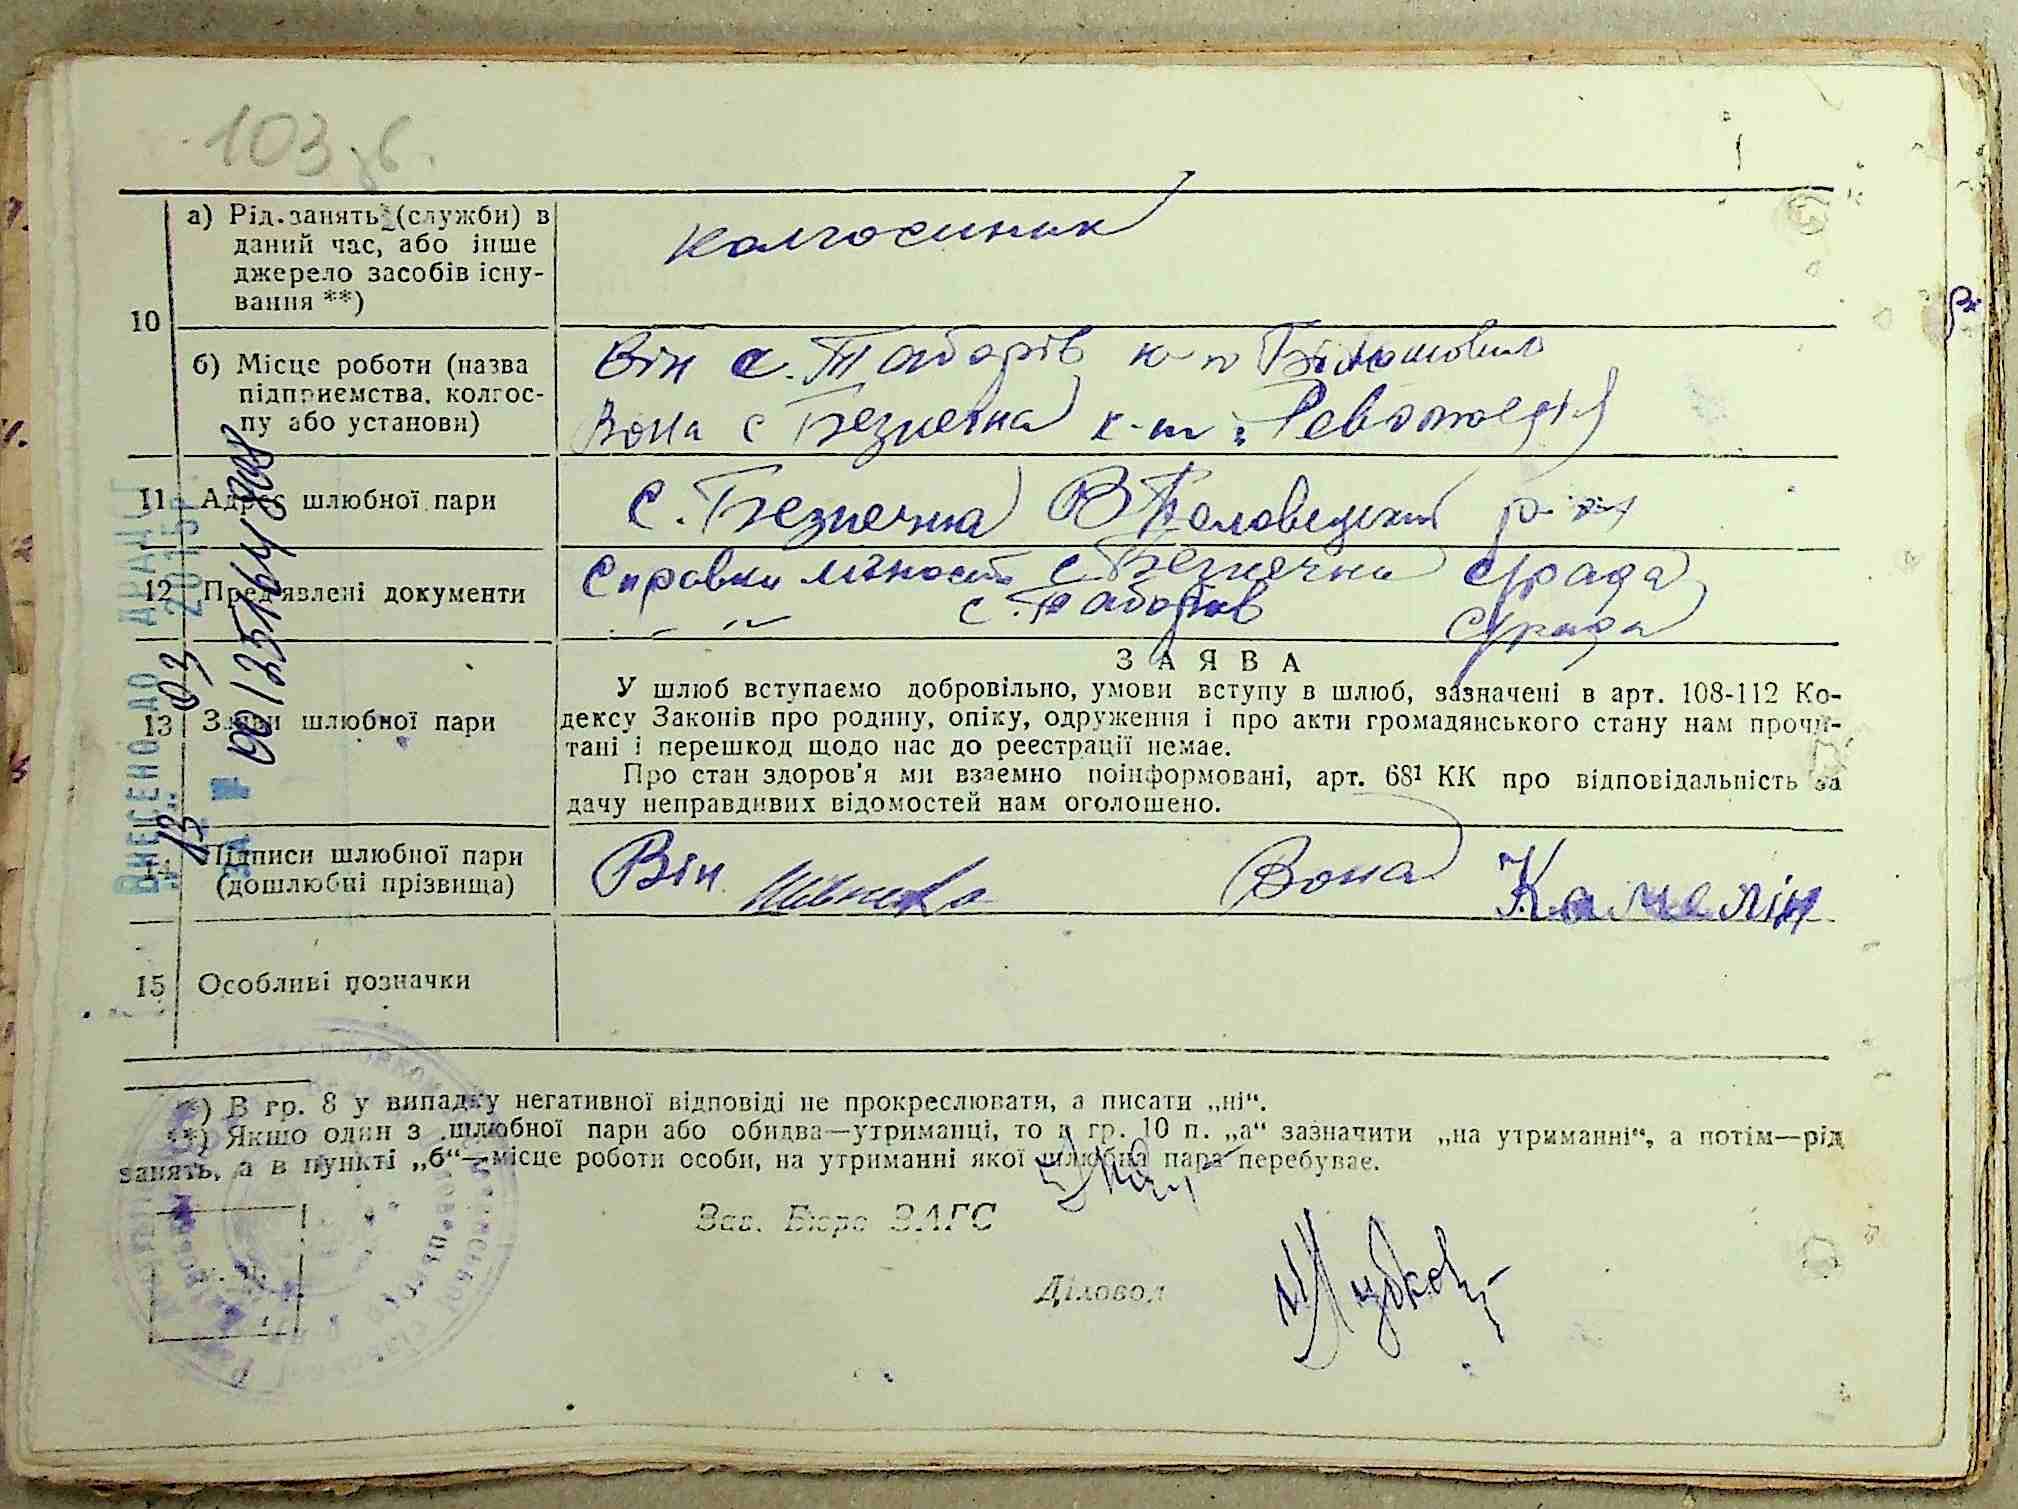 103 зв.
10
а) Рід занять (служби) в
даний час, або інше
джерело засобів існу-
вання **)
колгоспник
б) Місце роботи (назва
підприємства, колгос-
пу або установи)
Він с. Таборів к-п
Вона с Безпечна к-п Революція
11 Адрес шлюбної пари
с. Безпечна В Половецький р-ну
12 Пред'явлені документи
Справки с. Безпечна с/рада
с. Таборів с/рада
13 Заяви шлюбної пари
ЗАЯВА
У шлюб вступаємо добровільно, умови вступу в шлюб, зазначені в арт. 108-112 Ко-
дексу Законів про родину, опіку, одруження і про акти громадянського стану нам прочи-
тані і перешкод щодо нас до реєстрації немає.
Про стан здоров'я ми взаємно поінформовані, арт. 68¹ КК про відповідальність за
дачу неправдивих відомостей нам оголошено.
14 Підписи шлюбної пари
(дошлюбні прізвища)
Він Вона
15 Особливі позначки
ВНЕСЕНО ДО ДРАЦСГ
13. 03 2015р.
ЗА № 00125164908
*) В гр. 8 у випадку негативної відповіді не прокреслювати, а писати „ні“.
**) Якщо один з шлюбної пари або обидва—утриманці, то в гр. 10 п. „а“ зазначити „на утриманні“, а потім—рід
занять, а в пункті „б“—місце роботи особи, на утриманні якої шлюбна пара перебуває.
Зав. Бюро ЗАГС
Діловод
М. П.